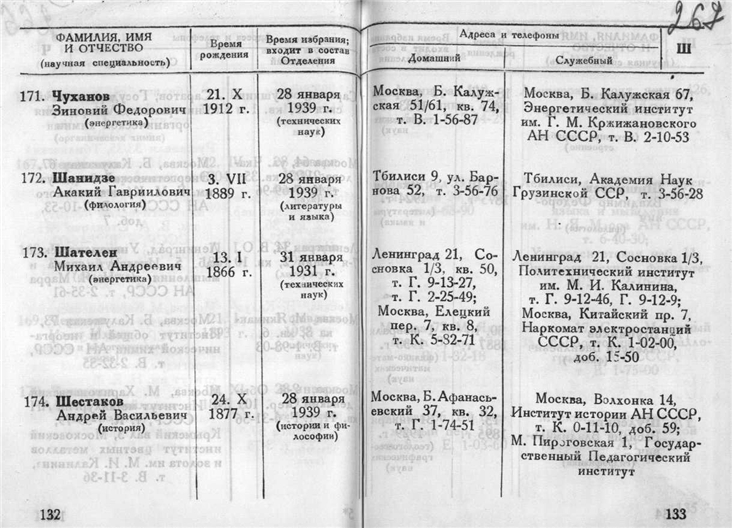 267
ФАМИЛИЯ, ИМЯ
И ОТЧЕСТВО
(научная специальность)
Время
рождения
Время избрания;
входит в состав
Отделения
Адреса и телефоны
Домашний
Служебный
Ш
171. Чуханов
Зиновий Федорович
(энергетика)
21. X
1912 г.
28 января
1939 г.
(технических
наук)
Москва, Б. Калуж-
ская 51/61, кв. 74,
т. В. 1-56-87
Москва, Б. Калужская 67,
Энергетический институт
им. Г. М. Кржижановского
АН СССР, т. В. 2-10-53
172. Шанидзе
Акакий Гавриилович
(филология)
3. VII
1889 г.
28 января
1939 г.
(литературы
и языка)
Тбилиси 9, ул. Бар-
нова 52, т. 3-56-76
Тбилиси, Академия Наук
Грузинской ССР, т. 3-56-28
173. Шателен
Михаил Андреевич
(энергетика)
13. I
1866 г.
31 января
1931 г.
(технических
наук)
Ленинград 21, Со-
сновка 1/3, кв. 50,
т. Г. 9-13-27,
т. Г. 2-25-49;
Москва, Елецкий
пер. 7, кв. 8,
т. К. 5-82-71
Ленинград 21, Сосновка 1/3,
Политехнический институт
им. М. И. Калинина,
т. Г. 9-12-46, Г. 9-12-9;
Москва, Китайский пр. 7,
Наркомат электростанций
СССР, т. К. 1-02-00,
доб. 15-50
174. Шестаков
Андрей Васильевич
(история)
24. X
1877 г.
28 января
1939 г.
(истории и фи-
лософии)
Москва, Б. Афанась-
евский 37, кв. 32,
т. Г. 1-74-51
Москва, Волхонка 14,
Институт истории АН СССР,
т. К. 0-11-10, доб. 59;
М. Пироговская 1, Государ-
ственный Педагогический
институт
132
133